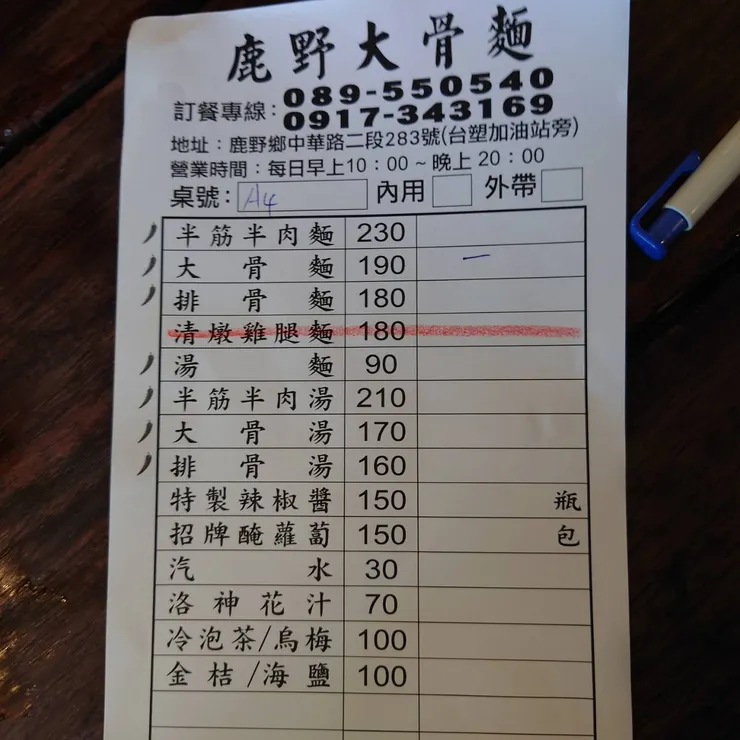 鹿野大骨麵
訂餐專線：089-550540
0917-343169
地址：鹿野鄉中華路二段283號(台塑加油站旁)
營業時間：每日早上10：00～晚上20：00
桌號： A4 內用 外帶
半筋半肉麵 230
大骨麵 190 一
排骨麵 180
清燉雞腿麵 180
湯麵 90
半筋半肉湯 210
大骨湯 170
排骨湯 160
特製辣椒醬 150 瓶
招牌醃蘿蔔 150 包
汽水 30
洛神花汁 70
冷泡茶/烏梅 100
金桔/海鹽 100